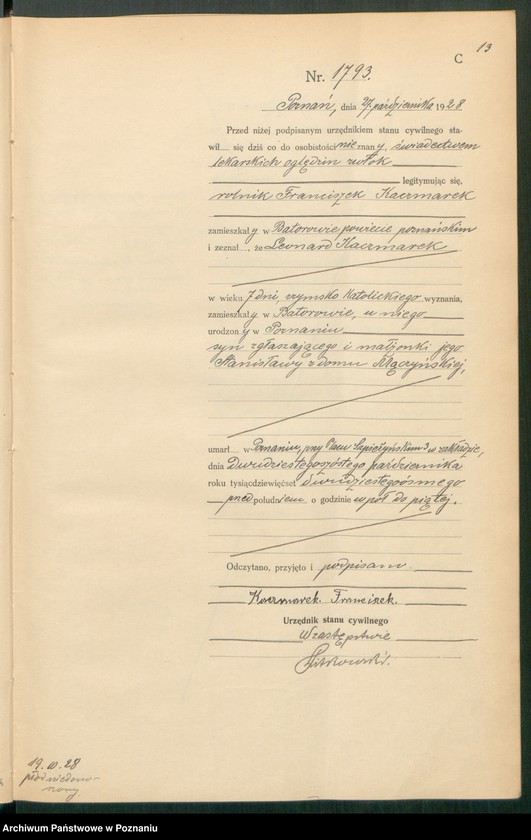 13
C
Nr. 1793.
Poznań, dnia 27. października 1928
Przed niżej podpisanym urzędnikiem stanu cywilnego sta-
wił się dziś co do osobistości nieznany, świadectwem
lekarskich oględzin zwłok
legitymując się,
rolnik Franciszek Kaczmarek
zamieszkały w Batorowie powiecie poznańskim
i zeznał, że Leonard Kaczmarek
w wieku 7 dni, rzymsko katolickiego wyznania,
zamieszkały w Batorowie, u niego
urodzony w Poznaniu
syn zgłaszającego i małżonki jego
Stanisławy z domu Kłączyńskiej,
umarł w Poznaniu, przy Placu Sapieżyńskim 3 w zakładzie,
dnia dwudziestegoszóstego października
roku tysiącdziewięćset dwudziestegoósmego
przed południem o godzinie wpół do piątej.
Odczytano, przyjęto i podpisano
Kaczmarek Franciszek.
Urzędnik stanu cywilnego
W zastępstwie
19. 28
płód niedono-
szony
Archiwum Państwowe w Poznaniu